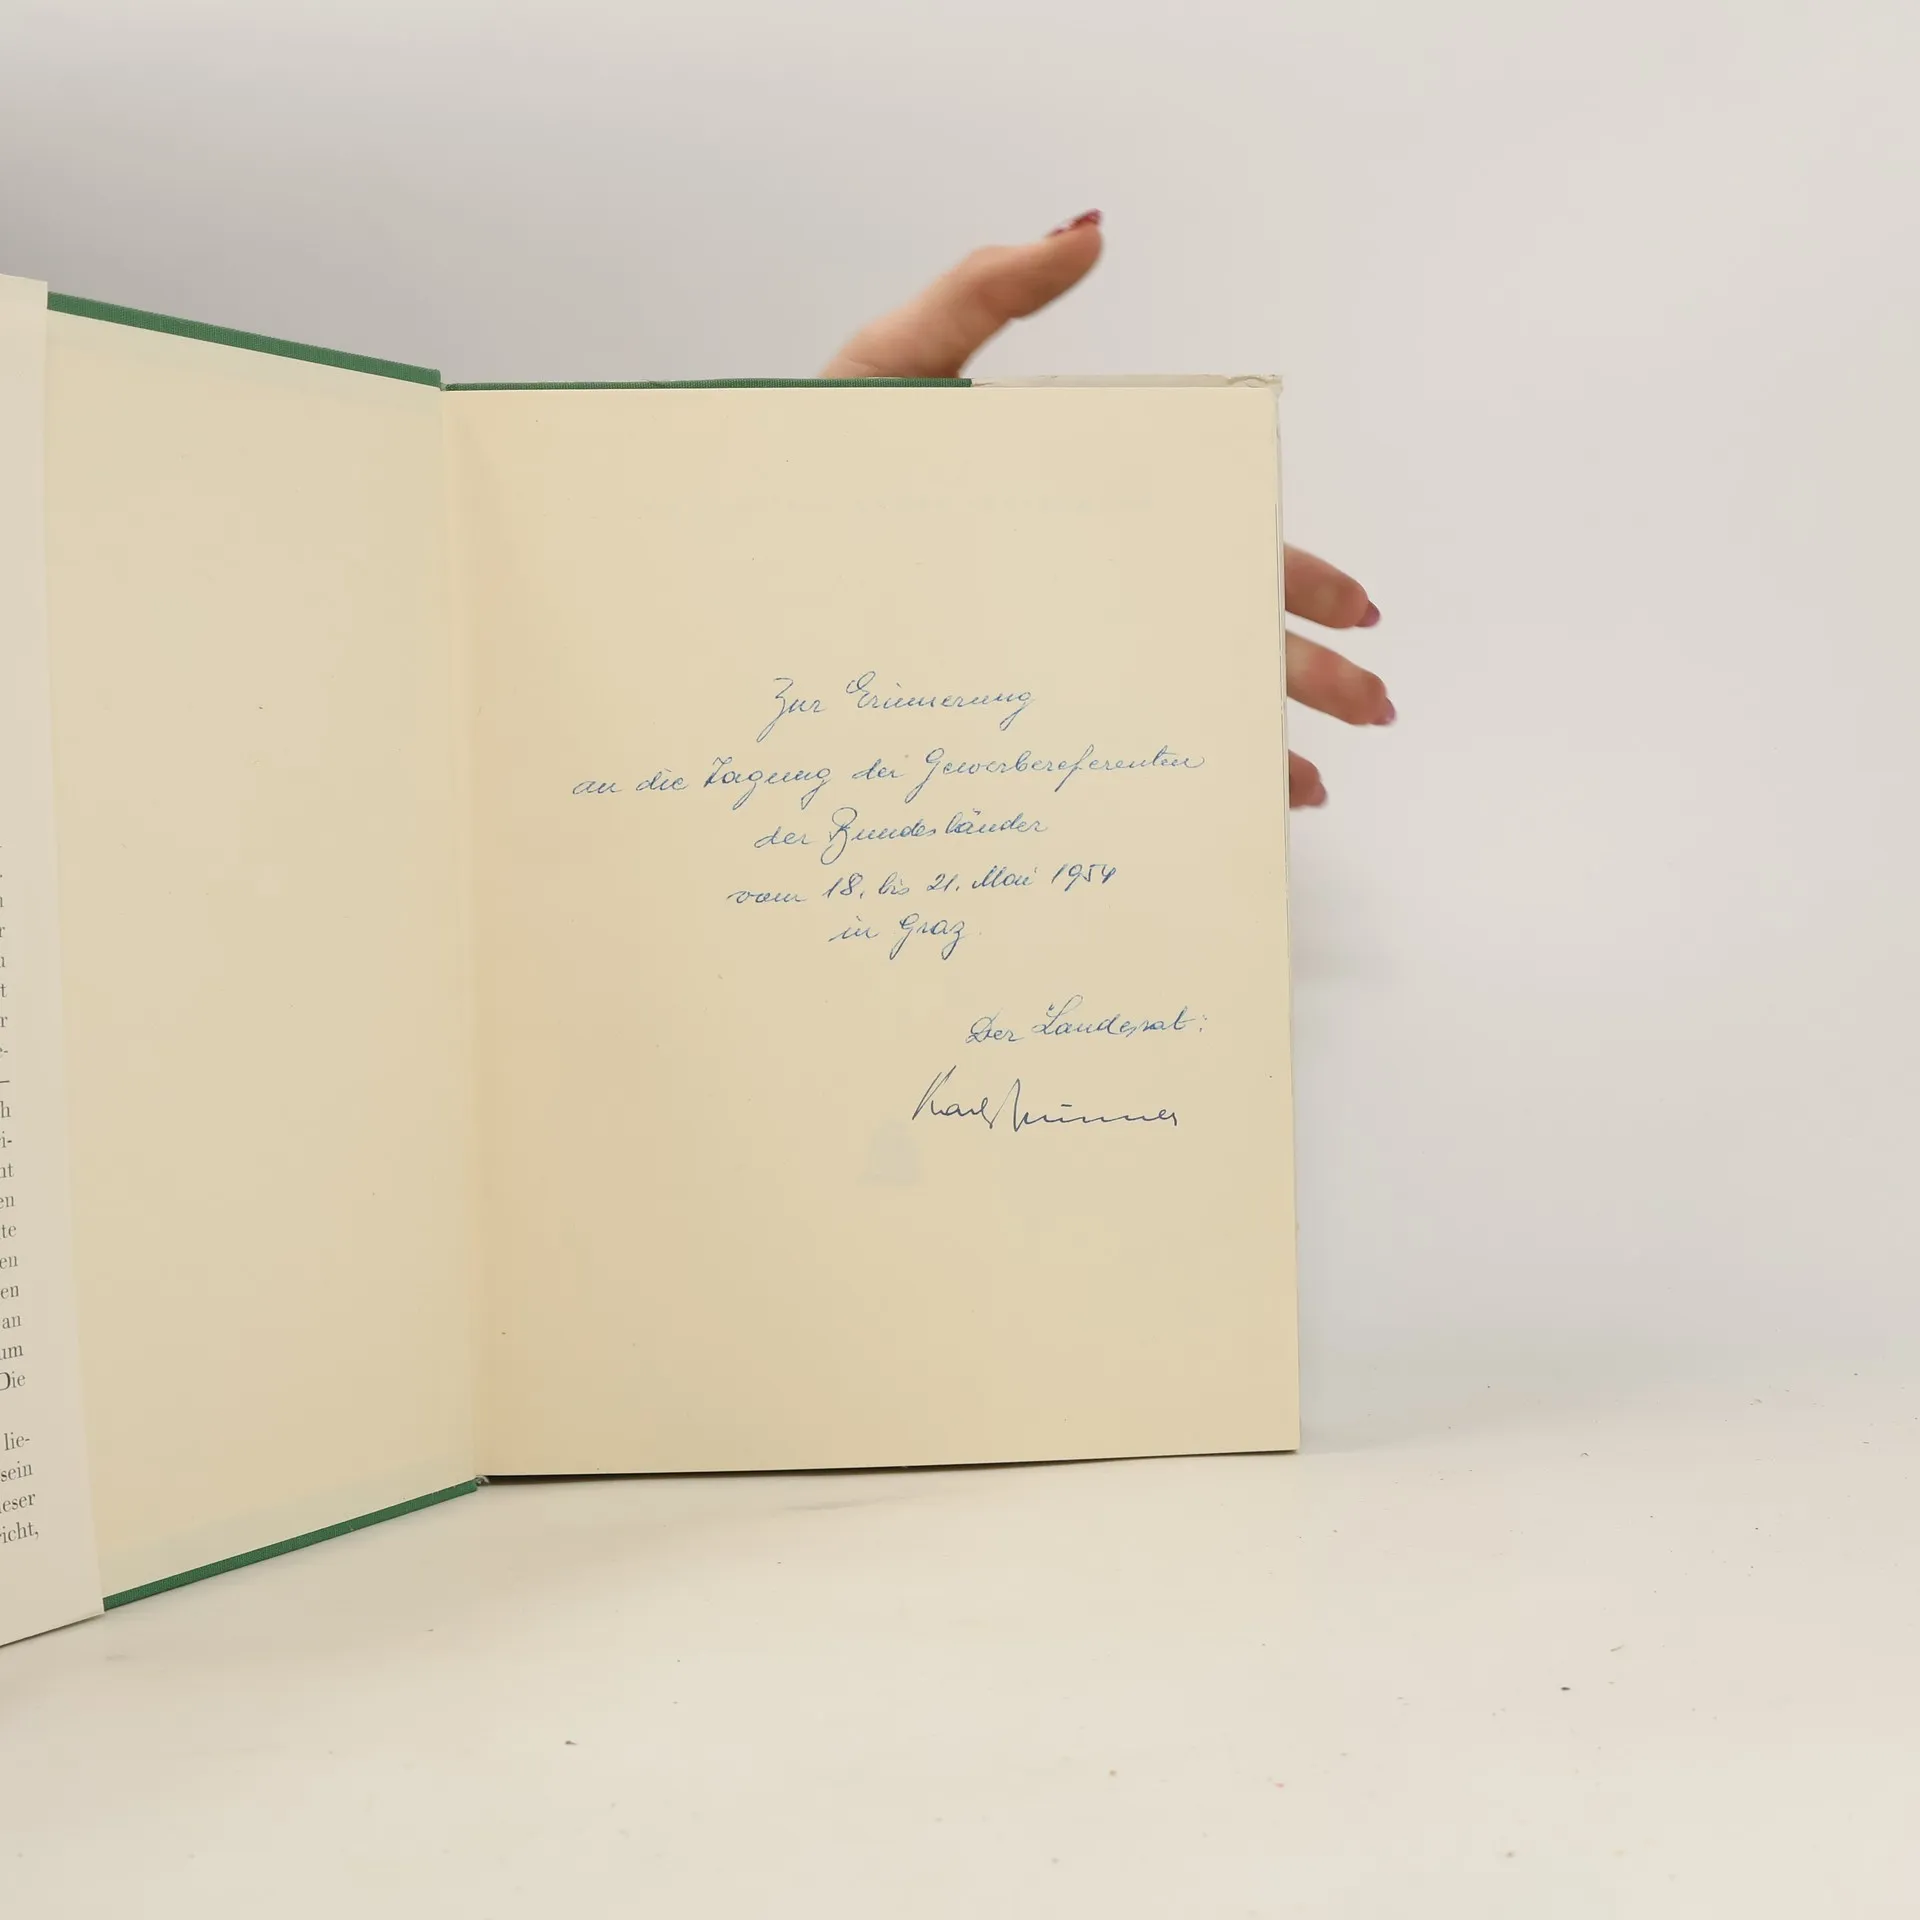 n
r
n
t
r
e-
–
h
i-
nt
en
te
en
en
an
um
Die
lie-
sein
ieser
richt,
Zur Erinnerung
an die Tagung der Gewerbereferenten
der Bundesländer
vom 18. bis 21. Mai 1954
in Graz.
Der Landesrat:
Karl Brunner